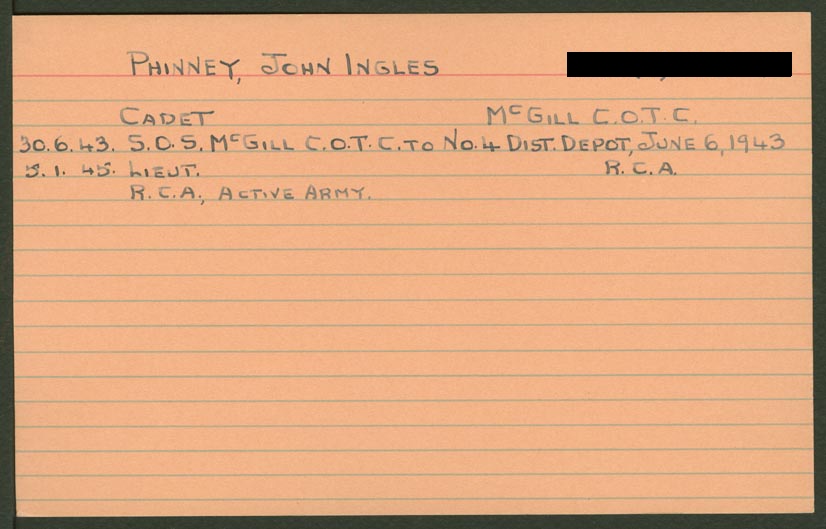 PHINNEY, JOHN INGLES
CADET McGILL C.O.T.C.
30.6.43. S.O.S. McGILL C.O.T.C. TO No.4 DIST. DEPOT, JUNE 6, 1943
5.1.45. LIEUT. R.C.A.
R.C.A., ACTIVE ARMY.